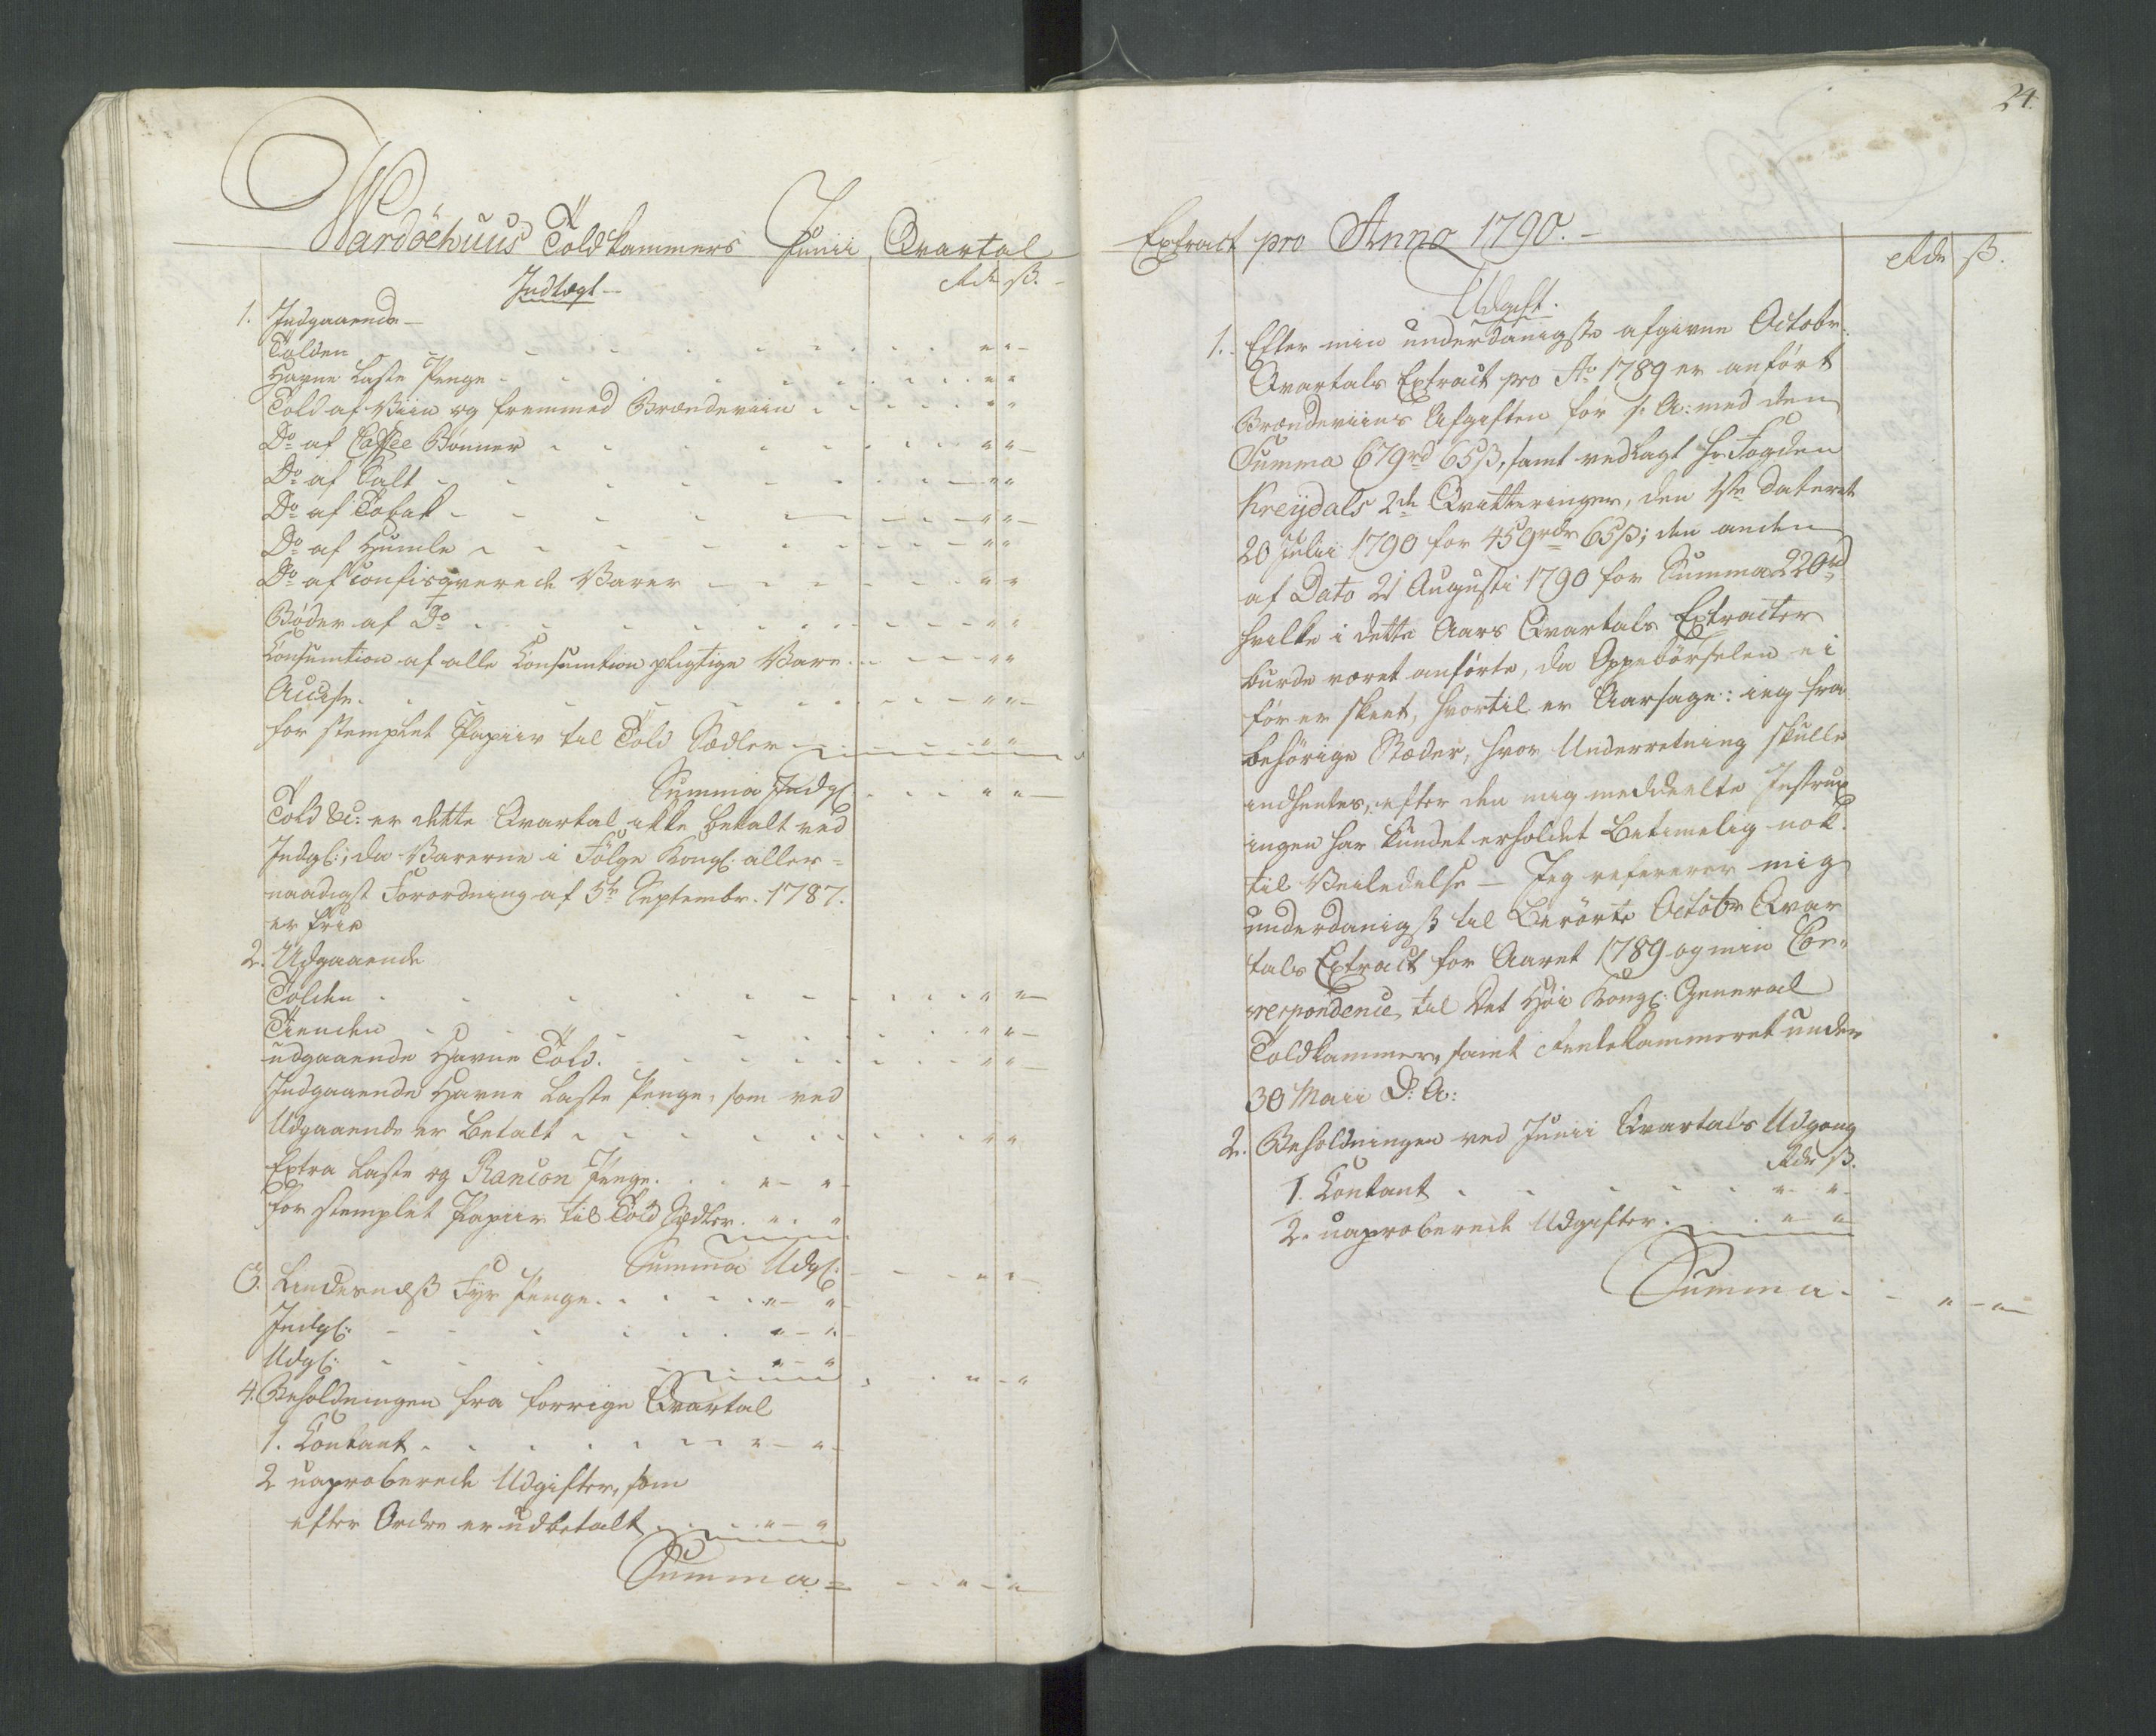 Wardöehuus Toldkammers Junii Qvartal
Indtægt
Rdr ß.
1. Indgaaende
Tolden " "
Havne Laste Penge " "
Told af Viin og fremmed Brændeviin " "
Do af Caffee Bönner " "
Do af Salt " "
Do af Tobak " "
Do af Humle " "
Do af Confisqverede Varer " "
Bøder af Do " "
Consumtion af alle Consumtion pligtige Vare " "
Accise " "
for stemplet Papiir til Told Sædler " "
Summa Indg: " "
Told &c: er dette Qvartal ikke betalt ved
Indg:, da Varerne i Fölge Kongl. aller-
naadigst Forordning af 5te Septembr. 1787.
er frie
2. Udgaaende
Tolden " "
Tienden " "
udgaaende Havne Told " "
Indgaaende Havne Laste Penge, som ved
Udgaaende er Betalt " "
Extra Laste og Rancon Penge " "
for stemplet Papiir til Told Sædler " "
Summa Udg: " "
3. Lindernæß Fyr Penge " "
Indg: " "
Udg: " "
4. Beholdningen fra forrige Qvartal
1. Contant " "
2 uaproberede Udgifter, som
efter Ordre er udbetalt " "
Summa " "
24.
Extract pro Anno 1790.
Rdr ß.
Udgift.
1. Efter min underdanigste afgivne Octobr.
Qvartals Extract pro Ao 1789 er anfört
Brændeviins Afgiften for s: A: med den
Summa 679rd 65ß, samt vedlagt Hr Fogden
Kreydals 2de Qvitteringer, den 1ste dateret
20 Julii 1790 for 459rdr 65ß; den anden
af Dato 21 Augusti 1790 for Summa 220rd
hvilke i dette Aars Qvartals Extracter
burde været anförte, da Oppebörselen ei
för er skeet, hvortil er Aarsage: ieg fra
behörige Stæder, hvor Underretning skulle
indhentes, efter den mig meddeelte Instrux
ingen har kundet erholdet Betimelig nok
til Veiledelse – Jeg refererer mig
underdanigst til Berörte Octobr Qvar
tals Extract for Aaret 1789 og min Cor-
respondence til Det Höi Kongl. General
Toldkammer, samt Rentekammeret under
30 Maii D: A:
2. Beholdningen ved Junii Qvartals Udgang
Rdr ß.
1. Contant " "
2. uaproberede Udgifter " "
Summa " "